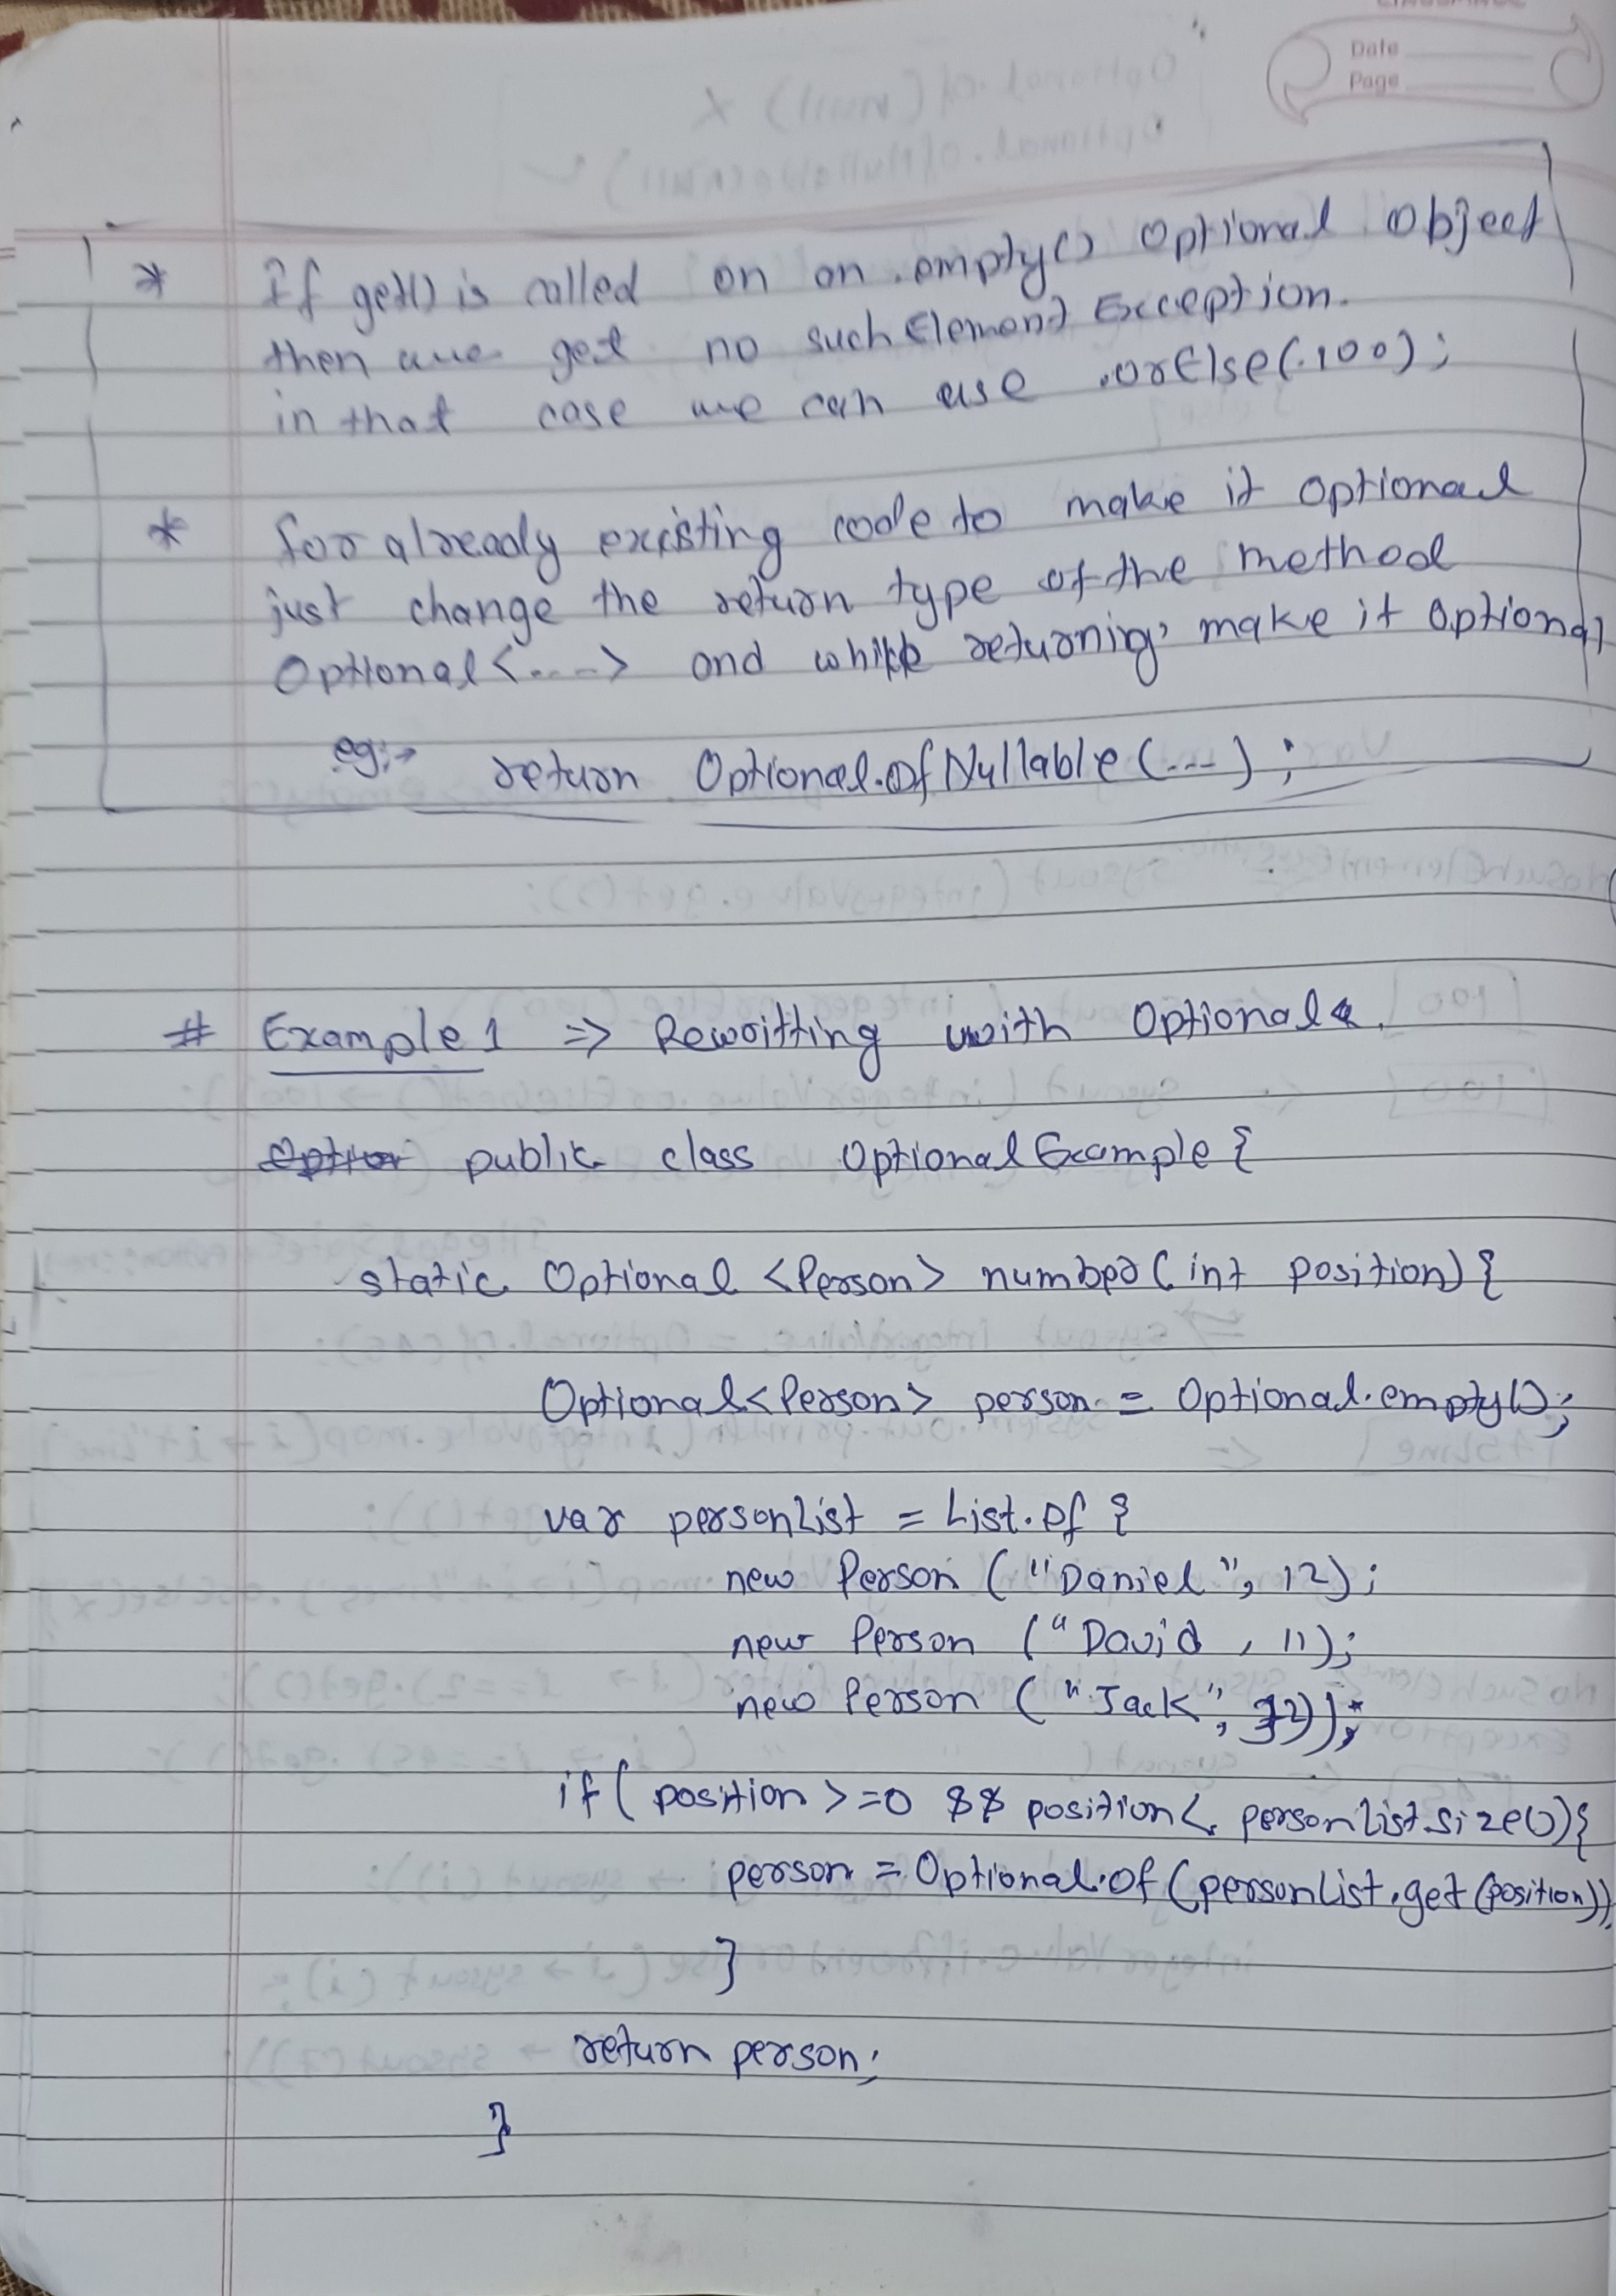 Date
Page
* If get() is called on on .empty() Optional Object
then we get no suchElement Exception.
in that case we can use .orElse(.100);
* for already existing code to make it optional
just change the return type of the method
Optional<....> and while returning, make it Optional
eg:→ return Optional.OfNullable(...);
# Example 1 => Rewritting with Optional
public class OptionalExample {
static Optional <Person> number(int position) {
Optional<Person> person = Optional.empty();
var personList = List.of {
new Person ("Daniel", 12);
new Person ("David , 11);
new Person ("Jack", ));
if( position >=0 && position < personList.size()){
person = Optional.of (personList.get(position))
}
return person;
}